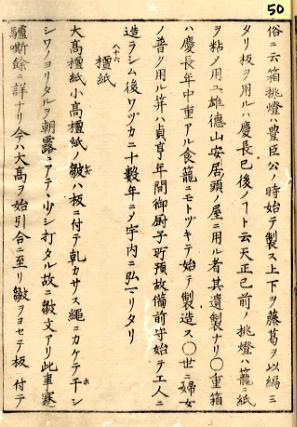 50
俗ニ云箱挑燈ハ豊臣公ノ時始テ製ス上下ヲ藤葛ヲ以編ミ
タリ板ヲ用ルハ慶長已後ノ㏇ト云天正已前ノ挑燈ハ籠ニ紙
ヲ粘ノ用ユ雄德山安居頭ノ屋ニ用ル者其遺製ナリ〇重箱
ハ慶長年中重アル食籠ニモトツキテ始テ製造ス〇世ニ婦女
ノ普ク用ル笄ハ貞亨年間御厨子所預故備前守始テ工人ニ
造ラシム後ワツカニ十數年ニノ宇内ニ弘リタリ
檀紙
大高檀紙小高檀紙ノ皺ハ板ニ付テ乾カサス繩ニカケテ干シ
シワノヨリタルヲ朝露ニアテ少シ打タル故ニ皺文アリ此事塞
驢嘶餘ニ詳ナリ今ハ大高ヲ始引合ニ至リ皺ヲヨセテ板付テ